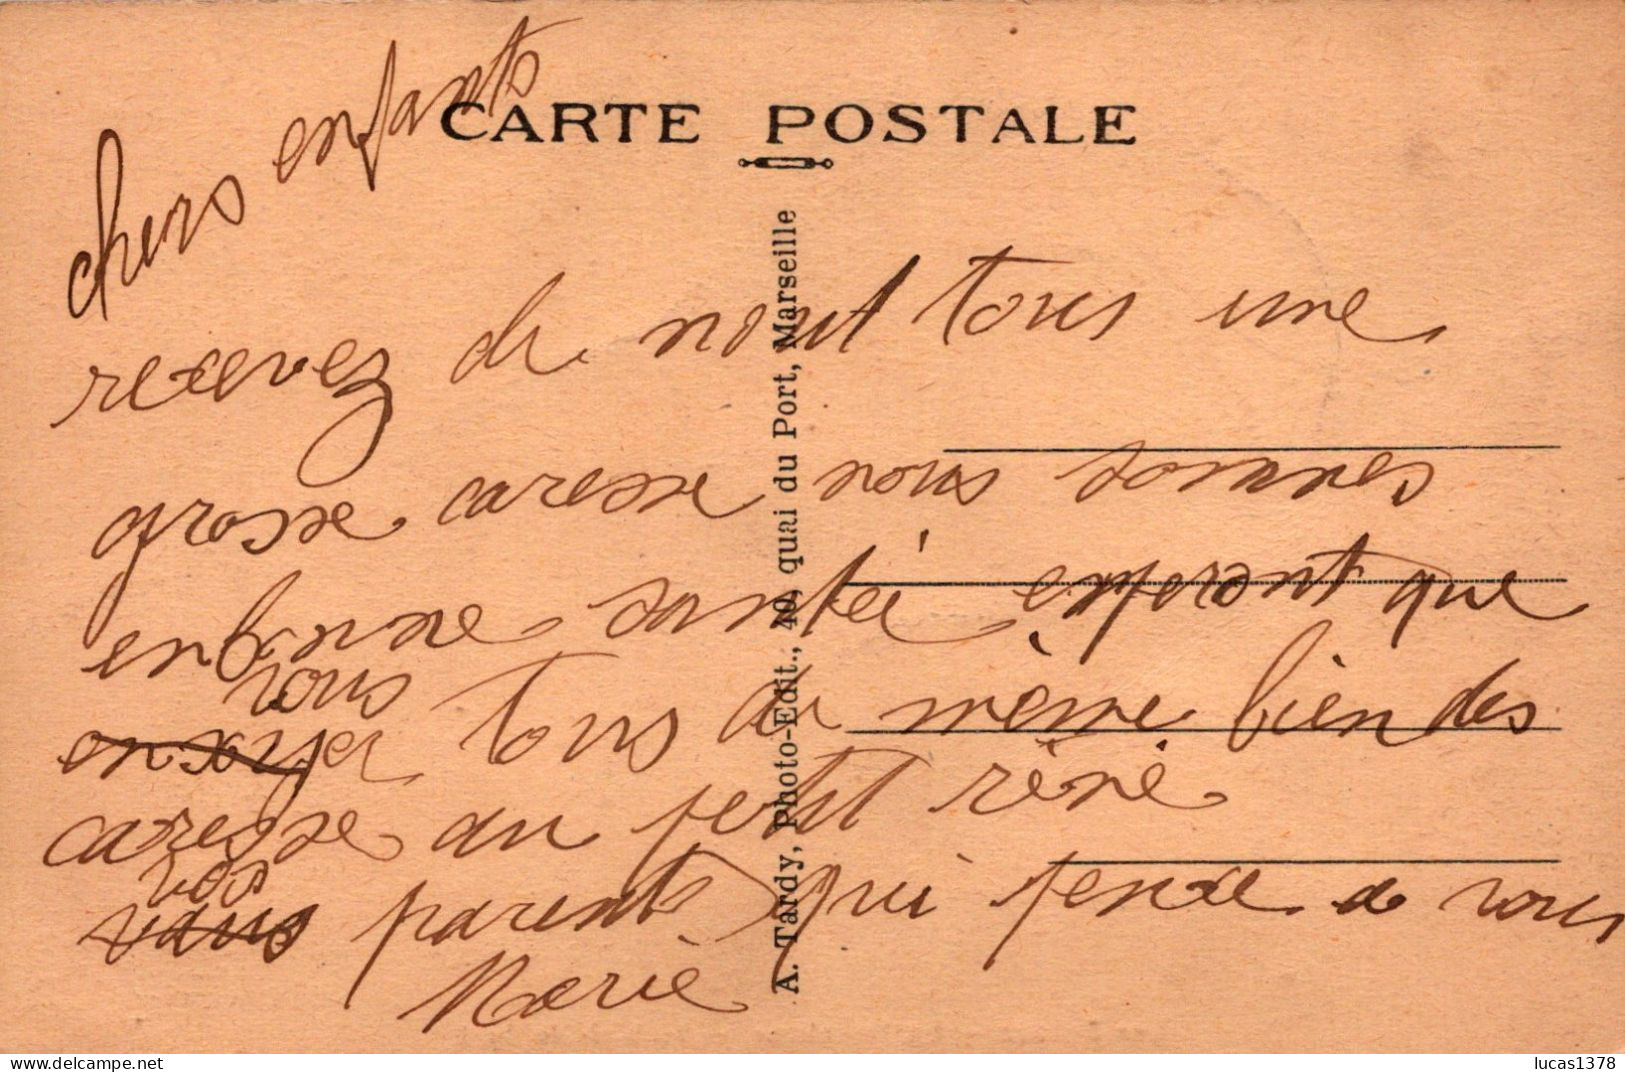 CARTE POSTALE
chers enfants
recevez de nout tous une
grosse caresse nous sommes
enbonne santé esperont que
vous
tous de même bien des
caresse au petit réné
vos
vous parents qui pense a vous
Marie
A. Tardy, Photo-Edit., 40, quai du Port, Marseille
delcampe.net
lucas1378